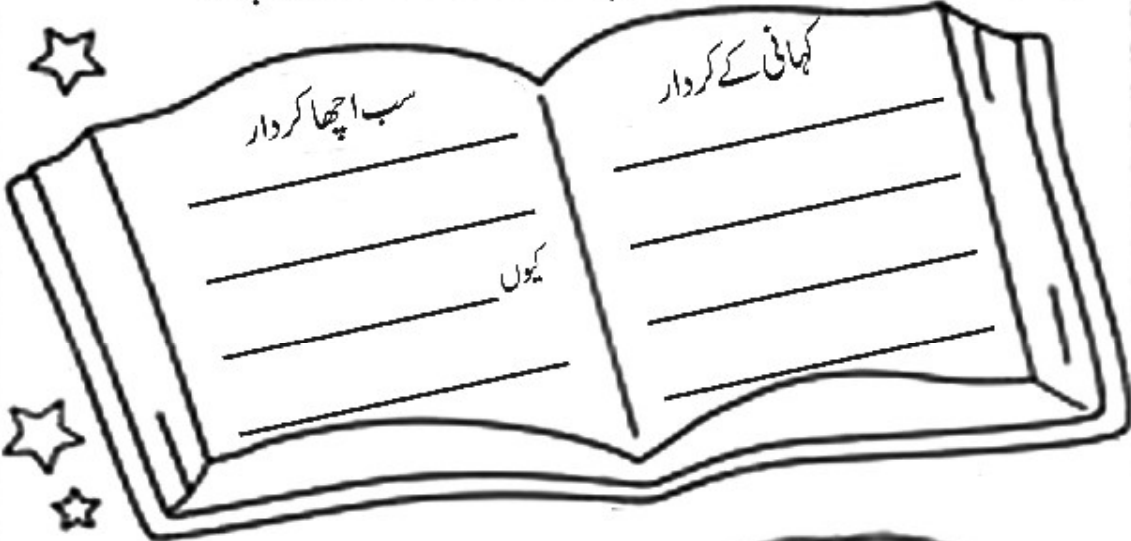 کہانی کے کردار
سب اچھا کردار
کیوں